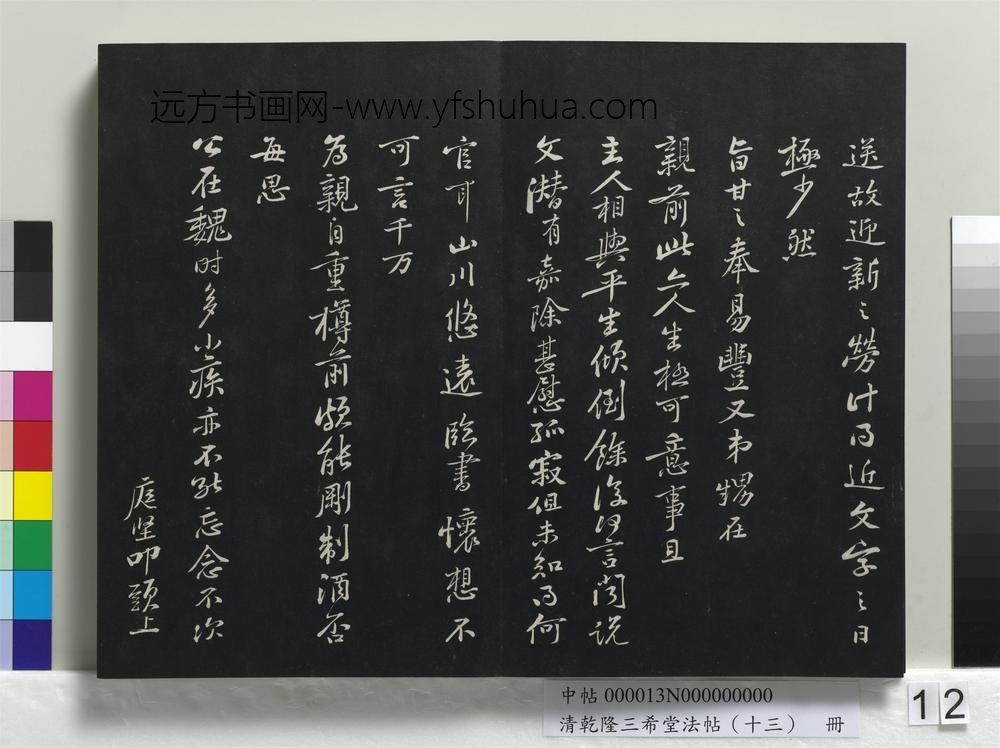 远方书画网-www.yfshuhua.com
送故迎新之勞計日近文字之日
極少然
旨甘之奉易豐又弟甥在
親前此亦人生極可意事且
主人相與平生傾倒餘復何言聞説
文潜有嘉除甚慰孤寂但未知得何
官耳山川悠遠臨書懷想不
可言千万
為親自重樽前頗能剛制酒否
每思
公在魏时多小疾亦不能忘念不次
庭坚叩頭上
中帖 000013N000000000
清乾隆三希堂法帖（十三） 冊
12